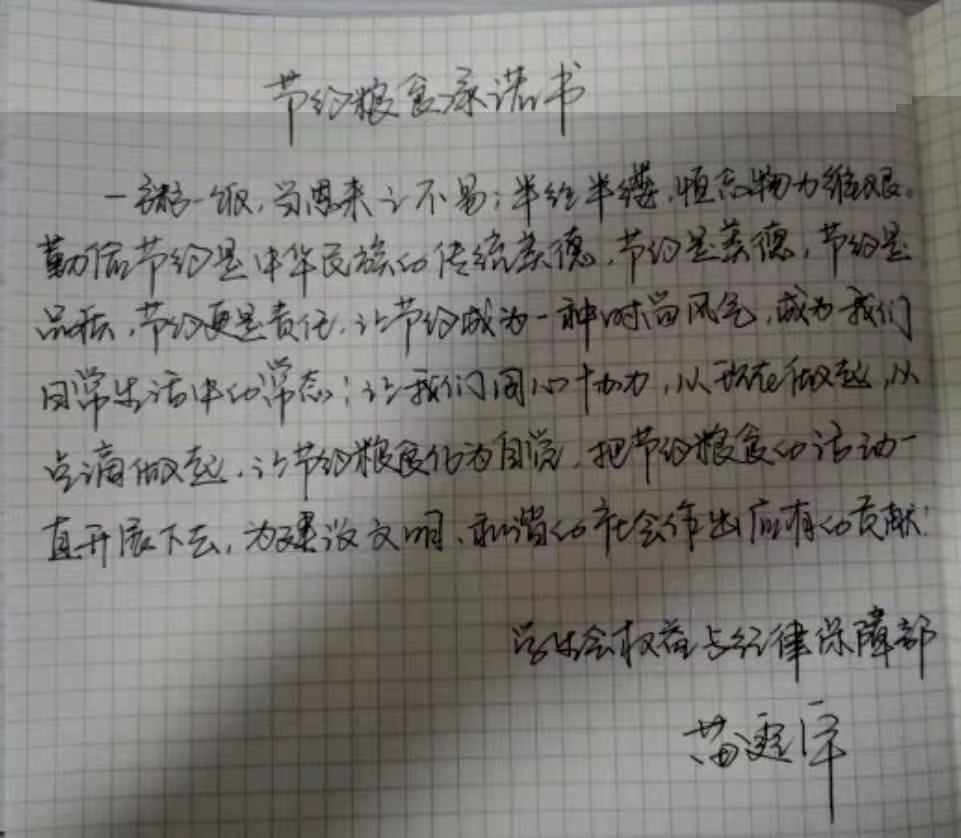 节约粮食承诺书
一粥一饭,当思来之不易;半丝半缕,恒念物力维艰。
勤俭节约是中华民族的传统美德,节约是美德,节约是
品质,节约更是责任。让节约成为一种时尚风气,成为我们
日常生活中的常态;让我们同心协力,从现在做起,从
点滴做起,让节约粮食化为自觉,把节约粮食的活动一
直开展下去,为建设文明、和谐的社会作出应有的贡献!
学生会权益与纪律保障部